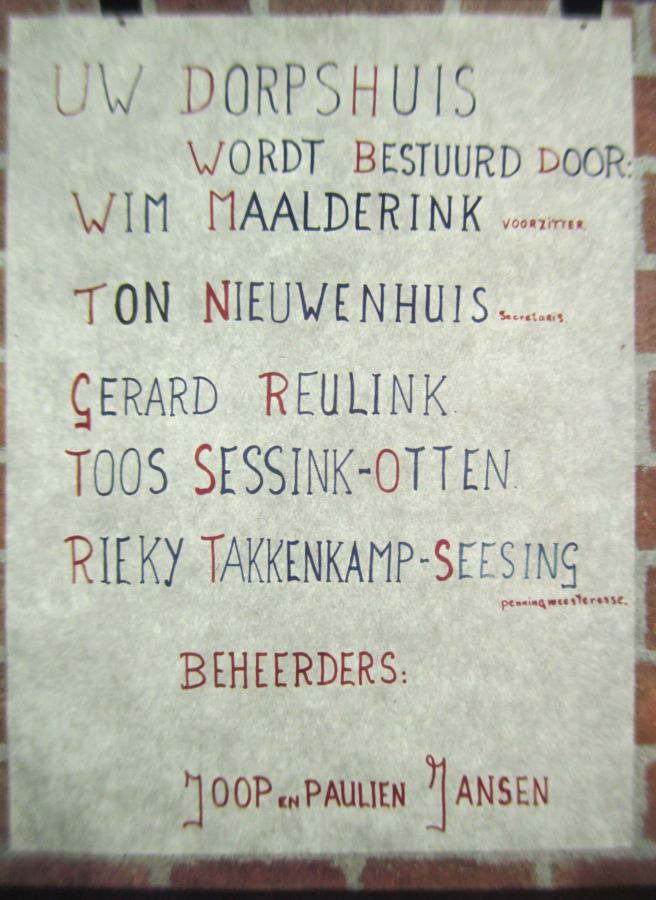 UW DORPSHUIS
WORDT BESTUURD DOOR:
WIM MAALDERINK VOORZITTER.
TON NIEUWENHUIS Secretaris.
GERARD REULINK.
TOOS SESSINK-OTTEN.
RIEKY TAKKENKAMP-SEESING
penningmeesteresse.
BEHEERDERS:
JOOP EN PAULIEN JANSEN